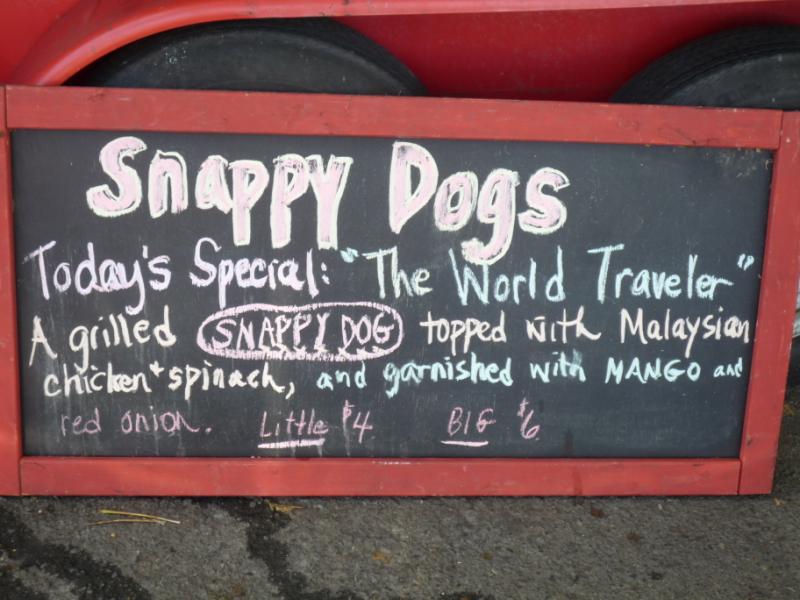 Snappy Dogs
Today's Special: "The World Traveler"
A grilled SNAPPY DOG topped with Malaysian
chicken + spinach, and garnished with MANGO and
red onion. Little $4 BIG $6